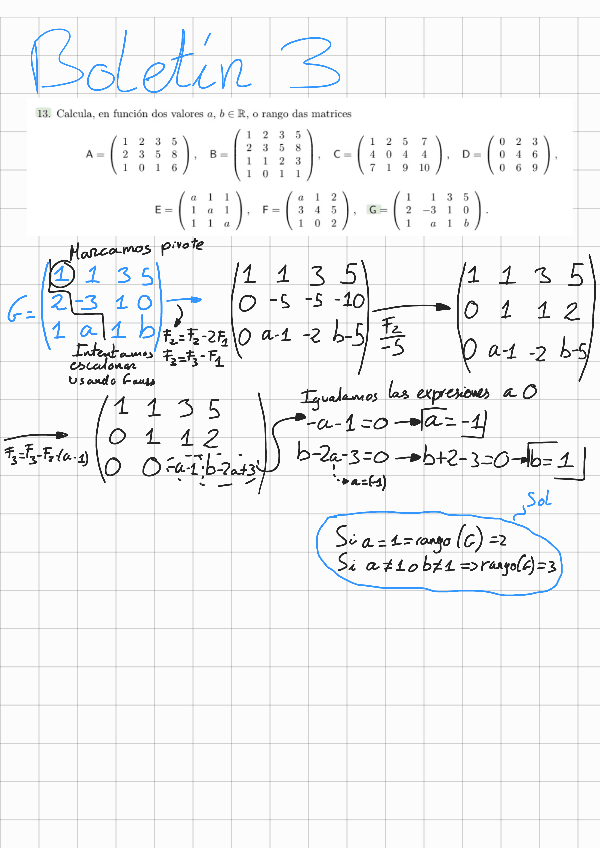 Boletín 3
13. Calcula, en función dos valores a, b ∈ ℝ, o rango das matrices
A = ( 1 2 3 5 ; 2 3 5 8 ; 1 0 1 6 ), B = ( 1 2 3 5 ; 2 3 5 8 ; 1 1 2 3 ; 1 0 1 1 ), C = ( 1 2 5 7 ; 4 0 4 4 ; 7 1 9 10 ), D = ( 0 2 3 ; 0 4 6 ; 0 6 9 )
E = ( a 1 1 ; 1 a 1 ; 1 1 a ), F = ( a 1 2 ; 3 4 5 ; 1 0 2 ), G = ( 1 1 3 5 ; 2 -3 1 0 ; 1 a 1 b ).
Marcamos pivote
G = ( 1 1 3 5 ; 2 -3 1 0 ; 1 a 1 b ) → ( 1 1 3 5 ; 0 -5 -5 -10 ; 0 a-1 -2 b-5 ) → ( 1 1 3 5 ; 0 1 1 2 ; 0 a-1 -2 b-5 )
F₂=F₂-2F₁
F₃=F₃-F₁
F₂/-5
Intentamos
escalonar
usando Gauss
F₃=F₃-F₂·(a-1)
( 1 1 3 5 ; 0 1 1 2 ; 0 0 -a-1 b-2a+3 )
Igualamos las expresiones a 0
-a-1=0 → a=-1
b-2a-3=0 → b+2-3=0 → b=1
→ a=(-1)
Sol
Si a=1=rango(G)=2
Si a≠1 o b≠1 => rango(G)=3